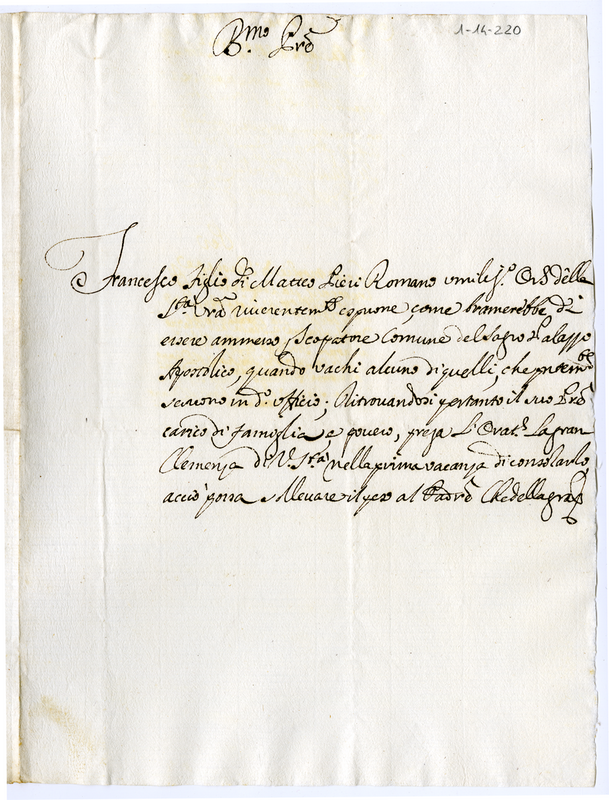 1-14-220
B.mo Prẽ
Francesco figlio di Matteo Pieri Romano umilis.o Or̃e della
S.tà Vr̃a riverentem.te espone, come bramerebbe di
essere ammesso p Scopatore Comune del Sagro Palazzo
Apostolico, quando vachi alcuno di quelli, che pntem.te
servono in d.o offizio; Ritrovandosi pertanto il suo Prẽ
carico di famiglia, e povero, prega l'Orat.e la gran
Clemenza di V.S.tà nella prima vacanza di consolarlo,
acciò possa sollevare il peso al Padrẽ. Che della gra